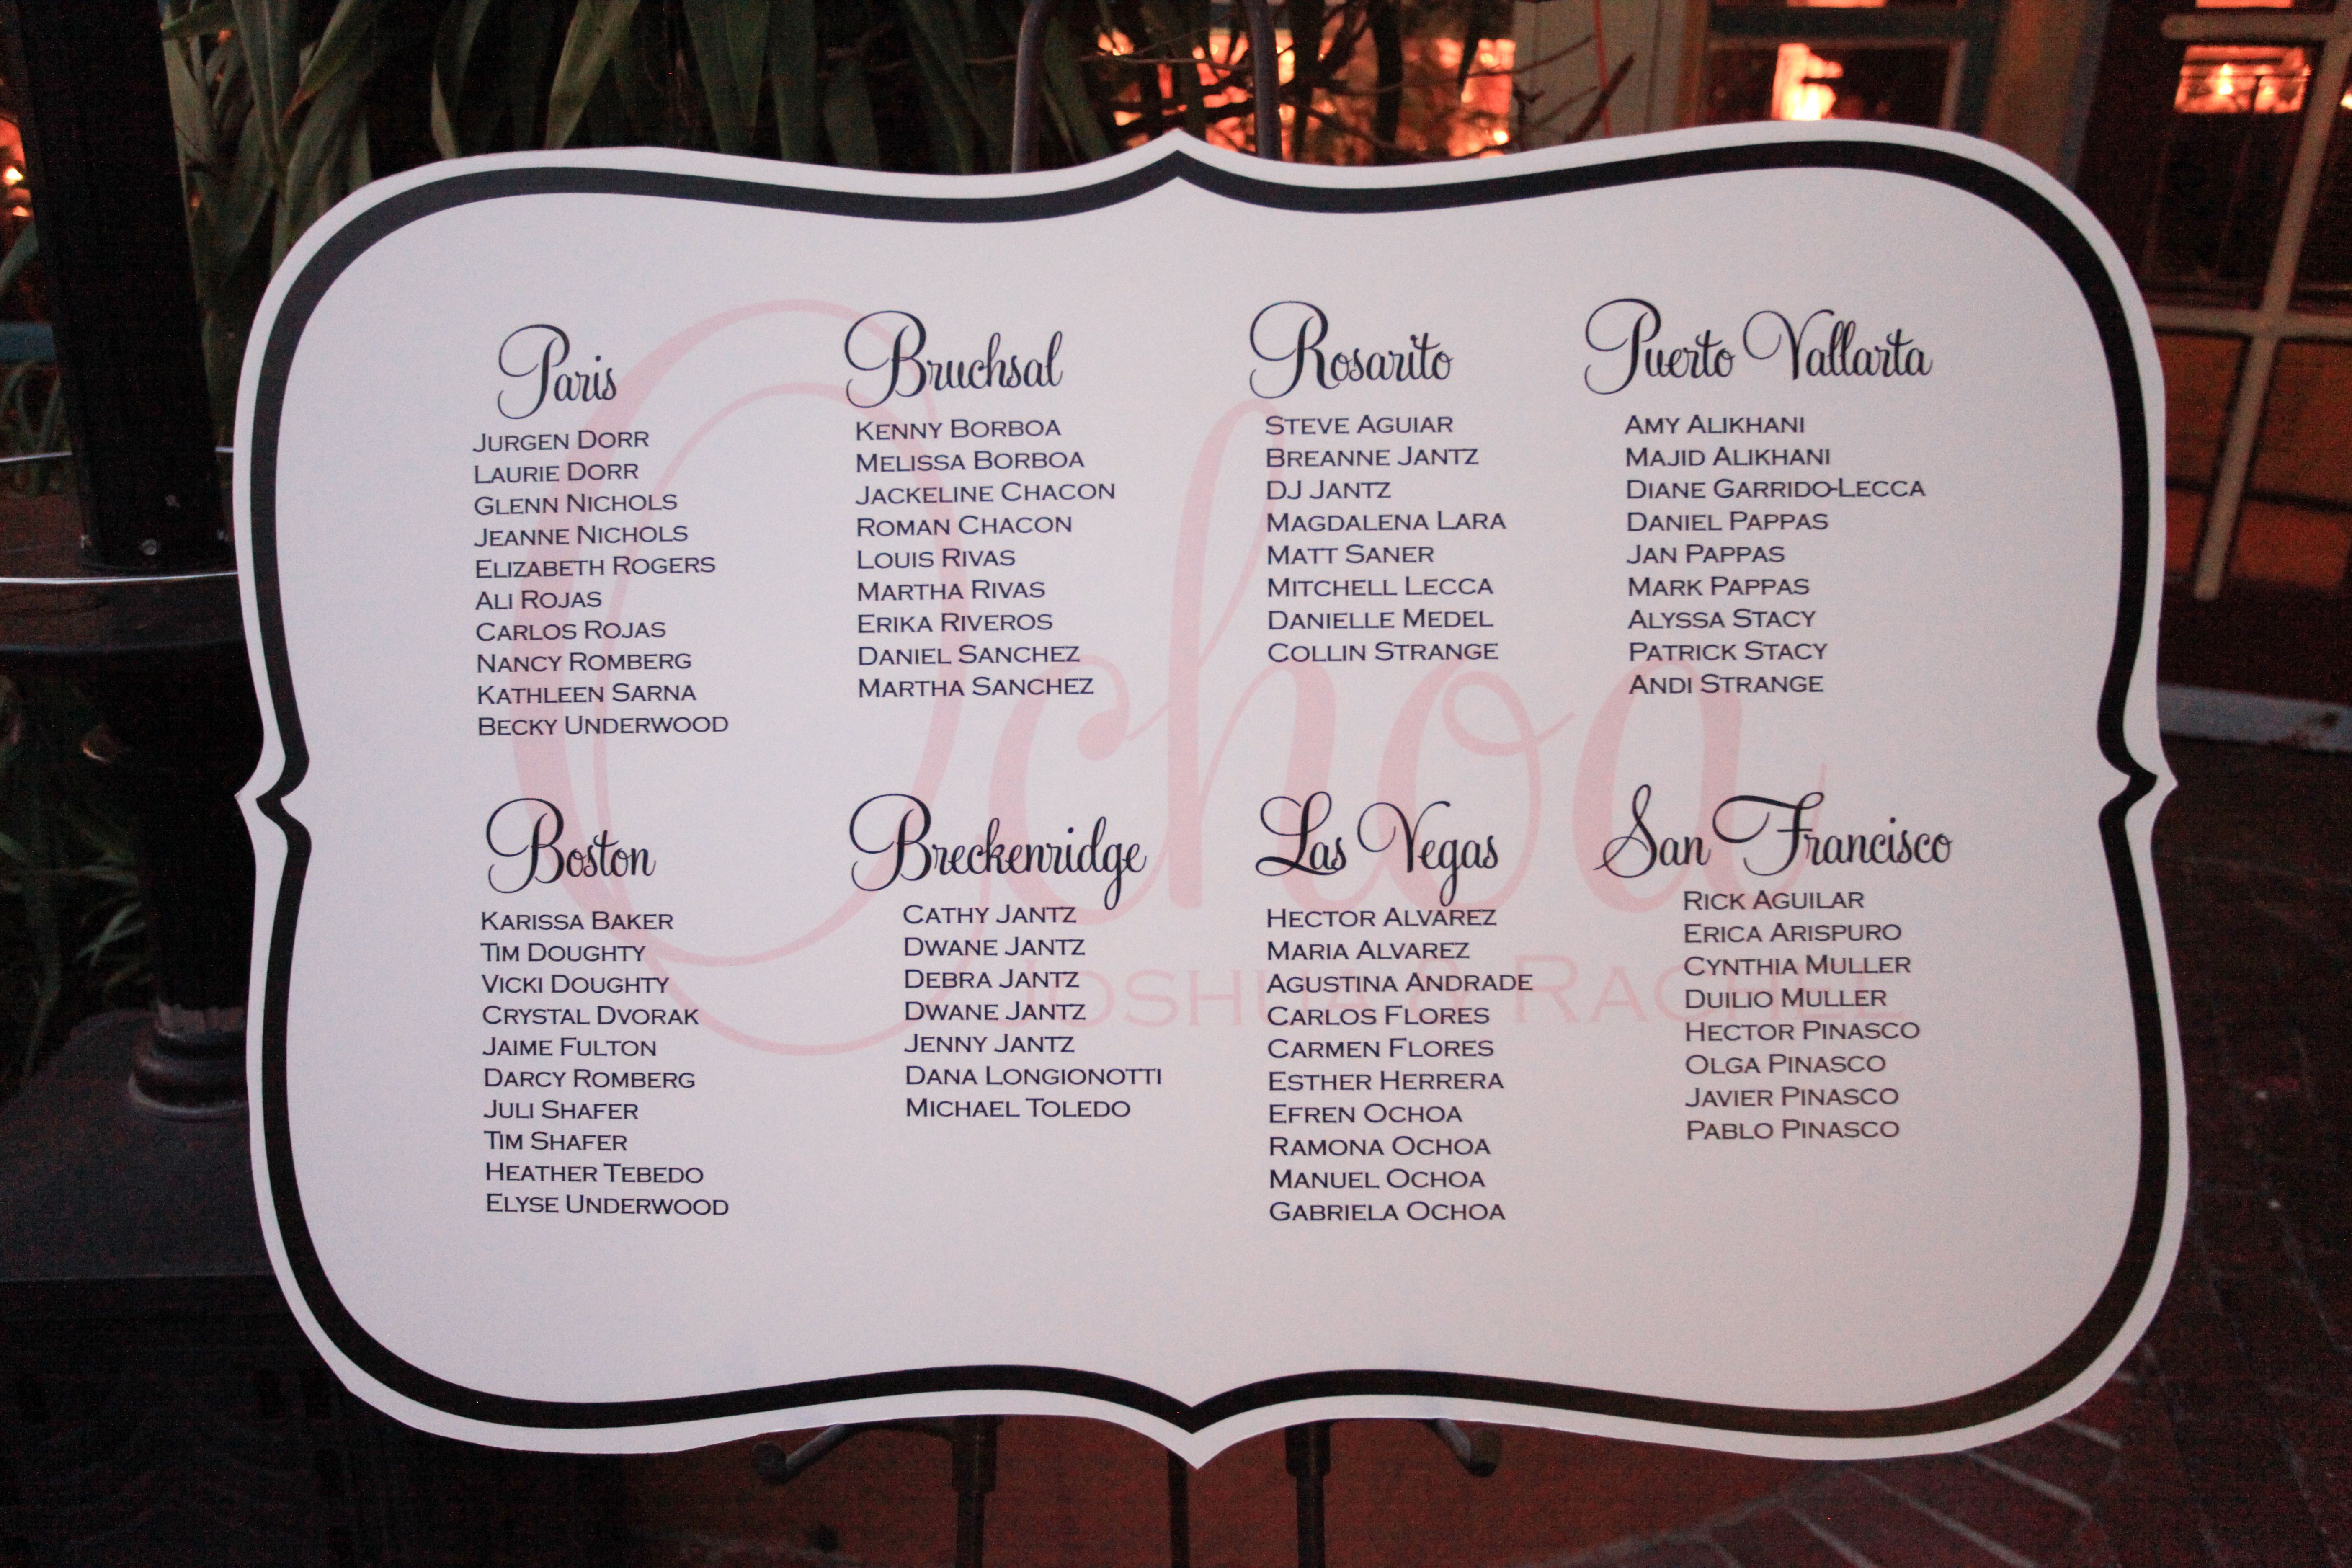 Paris
JURGEN DORR
LAURIE DORR
GLENN NICHOLS
JEANNE NICHOLS
ELIZABETH ROGERS
ALI ROJAS
CARLOS ROJAS
NANCY ROMBERG
KATHLEEN SARNA
BECKY UNDERWOOD
Bruchsal
KENNY BORBOA
MELISSA BORBOA
JACKELINE CHACON
ROMAN CHACON
LOUIS RIVAS
MARTHA RIVAS
ERIKA RIVEROS
DANIEL SANCHEZ
MARTHA SANCHEZ
Rosarito
STEVE AGUIAR
BREANNE JANTZ
DJ JANTZ
MAGDALENA LARA
MATT SANER
MITCHELL LECCA
DANIELLE MEDEL
COLLIN STRANGE
Puerto Vallarta
AMY ALIKHANI
MAJID ALIKHANI
DIANE GARRIDO-LECCA
DANIEL PAPPAS
JAN PAPPAS
MARK PAPPAS
ALYSSA STACY
PATRICK STACY
ANDI STRANGE
Boston
KARISSA BAKER
TIM DOUGHTY
VICKI DOUGHTY
CRYSTAL DVORAK
JAIME FULTON
DARCY ROMBERG
JULI SHAFER
TIM SHAFER
HEATHER TEBEDO
ELYSE UNDERWOOD
Breckenridge
CATHY JANTZ
DWANE JANTZ
DEBRA JANTZ
DWANE JANTZ
JENNY JANTZ
DANA LONGIONOTTI
MICHAEL TOLEDO
Las Vegas
HECTOR ALVAREZ
MARIA ALVAREZ
AGUSTINA ANDRADE
CARLOS FLORES
CARMEN FLORES
ESTHER HERRERA
EFREN OCHOA
RAMONA OCHOA
MANUEL OCHOA
GABRIELA OCHOA
San Francisco
RICK AGUILAR
ERICA ARISPURO
CYNTHIA MULLER
DUILIO MULLER
HECTOR PINASCO
OLGA PINASCO
JAVIER PINASCO
PABLO PINASCO
Ochoa
JOSHUA & RACHEL